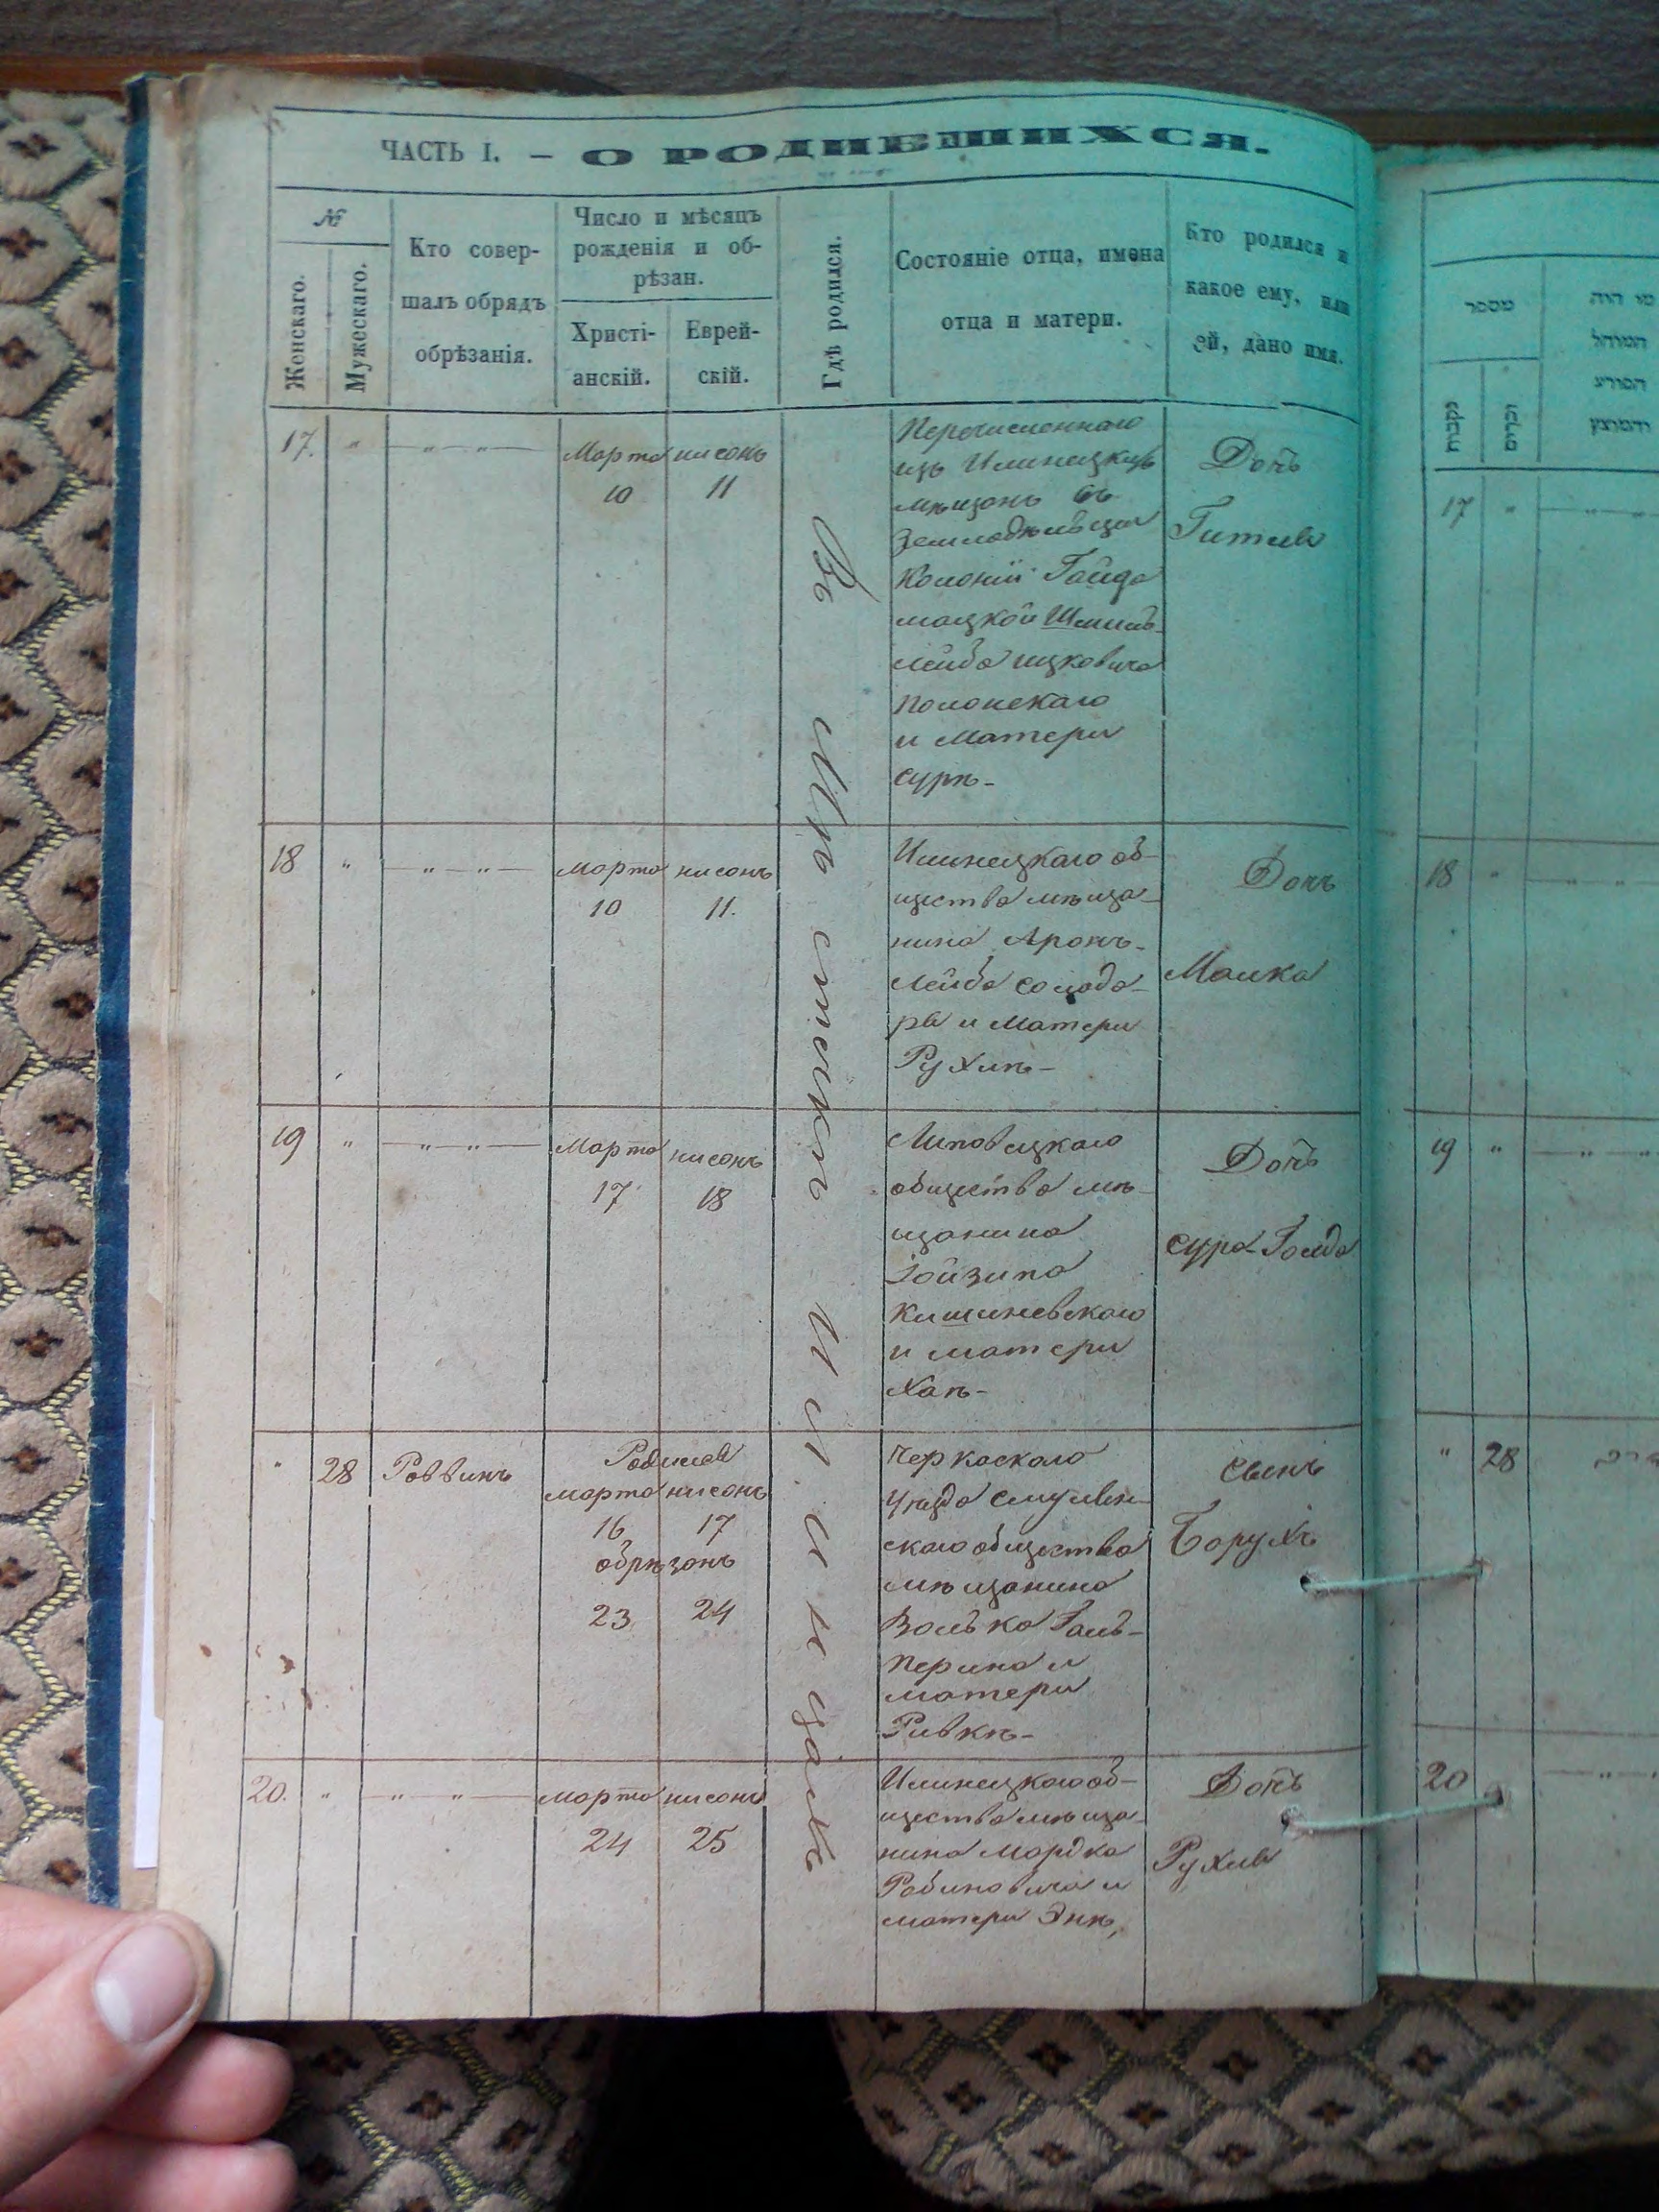 ЧАСТЬ I. — О РОДИВШИХСЯ.
№
Женскаго.
Мужескаго.
Кто совер-
шалъ обрядъ
обрѣзанія.
Число и мѣсяцъ
рожденія и об-
рѣзан.
Христі-
анскій.
Еврей-
скій.
Гдѣ родился.
Состояніе отца, имена
отца и матери.
Кто родился и
какое ему, или
ей, дано имя.
Въ Мѣстечкѣ Илинцахъ
17. " — " — " —
Марта нисонъ
10 11
Перечисленнаго
изъ Илинецкихъ
мѣщанъ въ
Земледѣльцы
Колоніи Гайда
мацкой Шмиль
лейба ицковича
Полонскаго
и матери
сурѣ-
Дочь
Гитля
18 " — " — " —
марта нисонъ
10 11.
Илинецкаго об-
щества мѣща-
нина Аронъ-
Лейба
и матери
Рухлѣ-
Дочь
Малка
19 " — " — " —
Марта нисонъ
17 18
Липовецкаго
общества мѣ-
щанина
Кишиневскаго
и матери
Ханѣ-
Дочь
Сура-Голда
" 28 Раввинъ
Родился
марта нисонъ
16 17
обрѣзанъ
23 24
Черкаскаго
уѣзда Смулян-
скаго общества
мѣщанина
Волька Галь-
перина и
матери
Ривкѣ-
Сынъ
Борухъ
20. " — " — " —
марта нисонъ
24 25
Илинецкаго об-
щества мѣща-
нина Мордка
Рабиновича и
матери Энѣ,
Дочь
Рухля
מספר
נקבות
זכרים
מי היה
המוהל
הפורע
והמוצץ
17 "
18 "
19 "
" 28
20